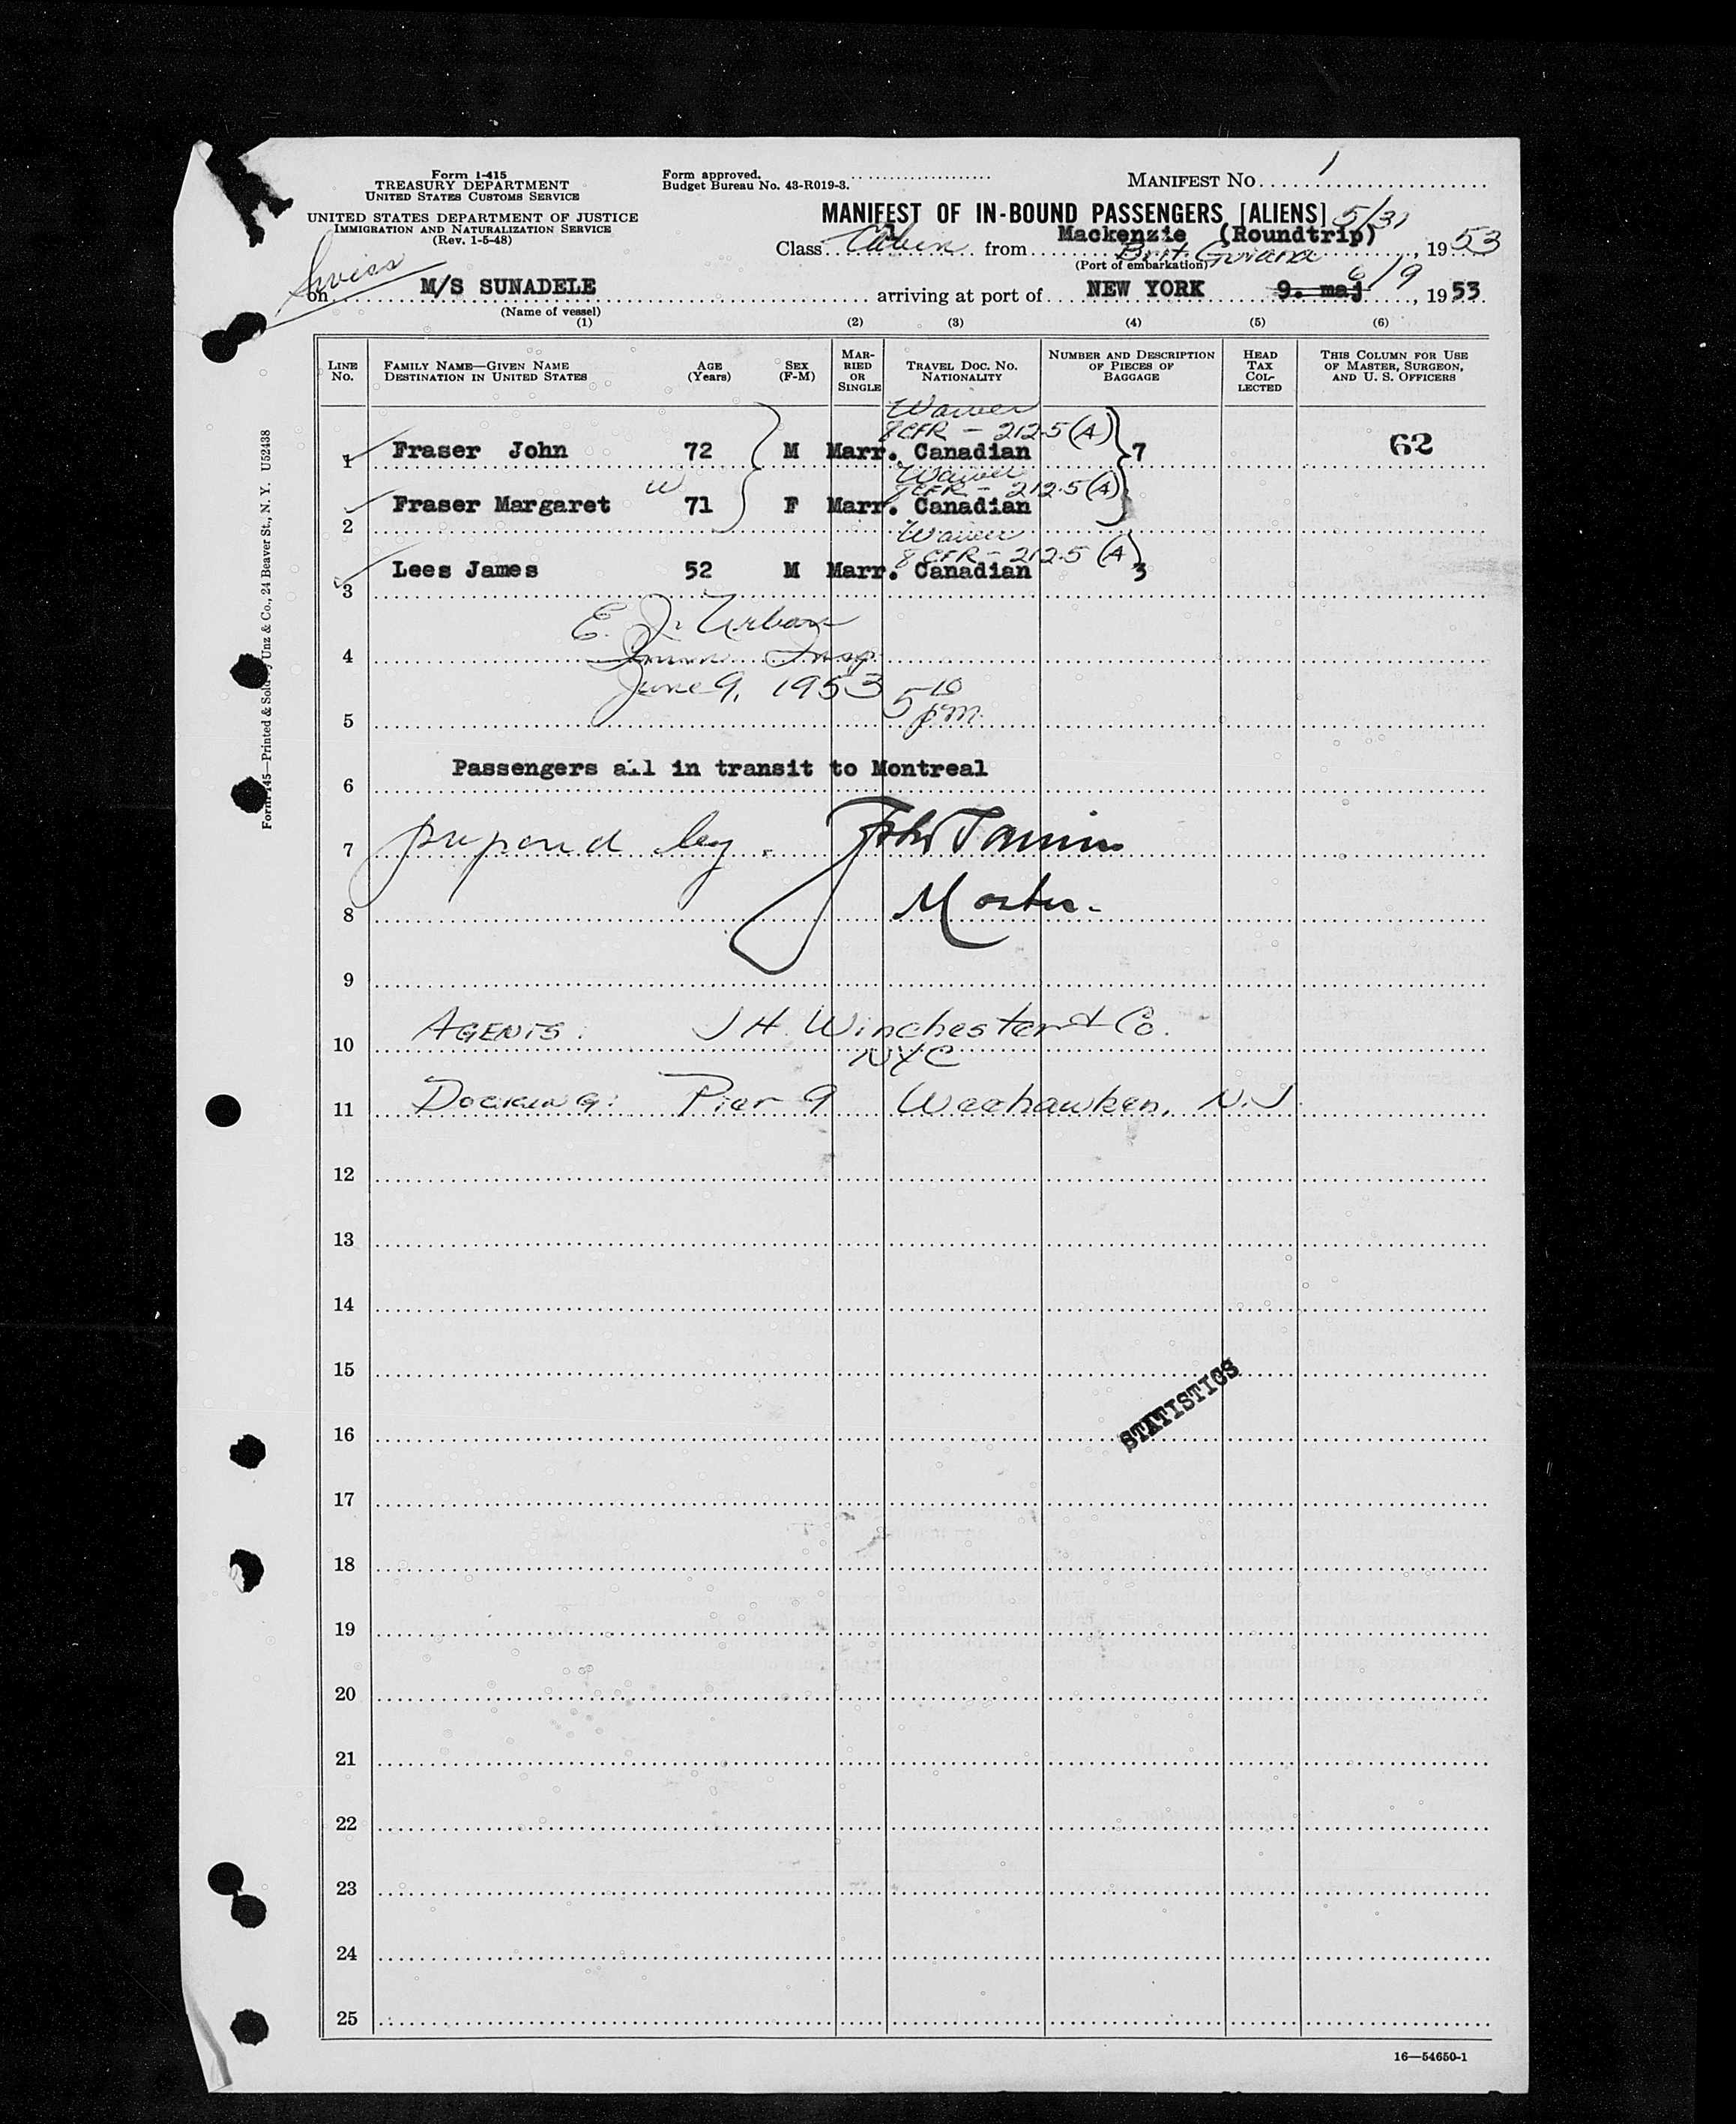 Form I-415
TREASURY DEPARTMENT
UNITED STATES CUSTOMS SERVICE
UNITED STATES DEPARTMENT OF JUSTICE
IMMIGRATION AND NATURALIZATION SERVICE
(Rev. 1-5-48)
Form approved.
Budget Bureau No. 43-R019-3.
MANIFEST NO. 1
MANIFEST OF IN-BOUND PASSENGERS [ALIENS] 5/31
Class Cabin from Mackenzie (Roundtrip) Brit. Guiana, 1953
(Port of embarkation)
Swiss
on M/S SUNADELE arriving at port of NEW YORK 9. maj 6/9, 1953
(Name of vessel)
(1) (2) (3) (4) (5) (6)
LINE NO.
FAMILY NAME—GIVEN NAME
DESTINATION IN UNITED STATES
AGE (Years)
SEX (F-M)
MARRIED OR SINGLE
TRAVEL DOC. NO.
NATIONALITY
NUMBER AND DESCRIPTION OF PIECES OF BAGGAGE
HEAD TAX COLLECTED
THIS COLUMN FOR USE OF MASTER, SURGEON, AND U. S. OFFICERS
Waiver
8 CFR - 212.5 (A)
1 Fraser John 72 M Marr. Canadian 7 62
Waiver
W 8 CFR - 212.5 (A)
2 Fraser Margaret 71 F Marr. Canadian
Waiver
8 CFR - 212.5 (A)
3 Lees James 52 M Marr. Canadian 3
E. J. Urban
4 Imm. Insp
June 9, 1953 5 10 pm
5
Passengers all in transit to Montreal
6
7 prepared by. John
8 Master
9
10 AGENTS: J H Winchester & Co.
NYC
11 DOCKING: Pier 9 Weehawken, N.J.
12
13
14
15
STATISTICS
16
17
18
19
20
21
22
23
24
25
16—54650-1
Form 415—Printed & Sold by Unz & Co., 24 Beaver St., N. Y. U52438